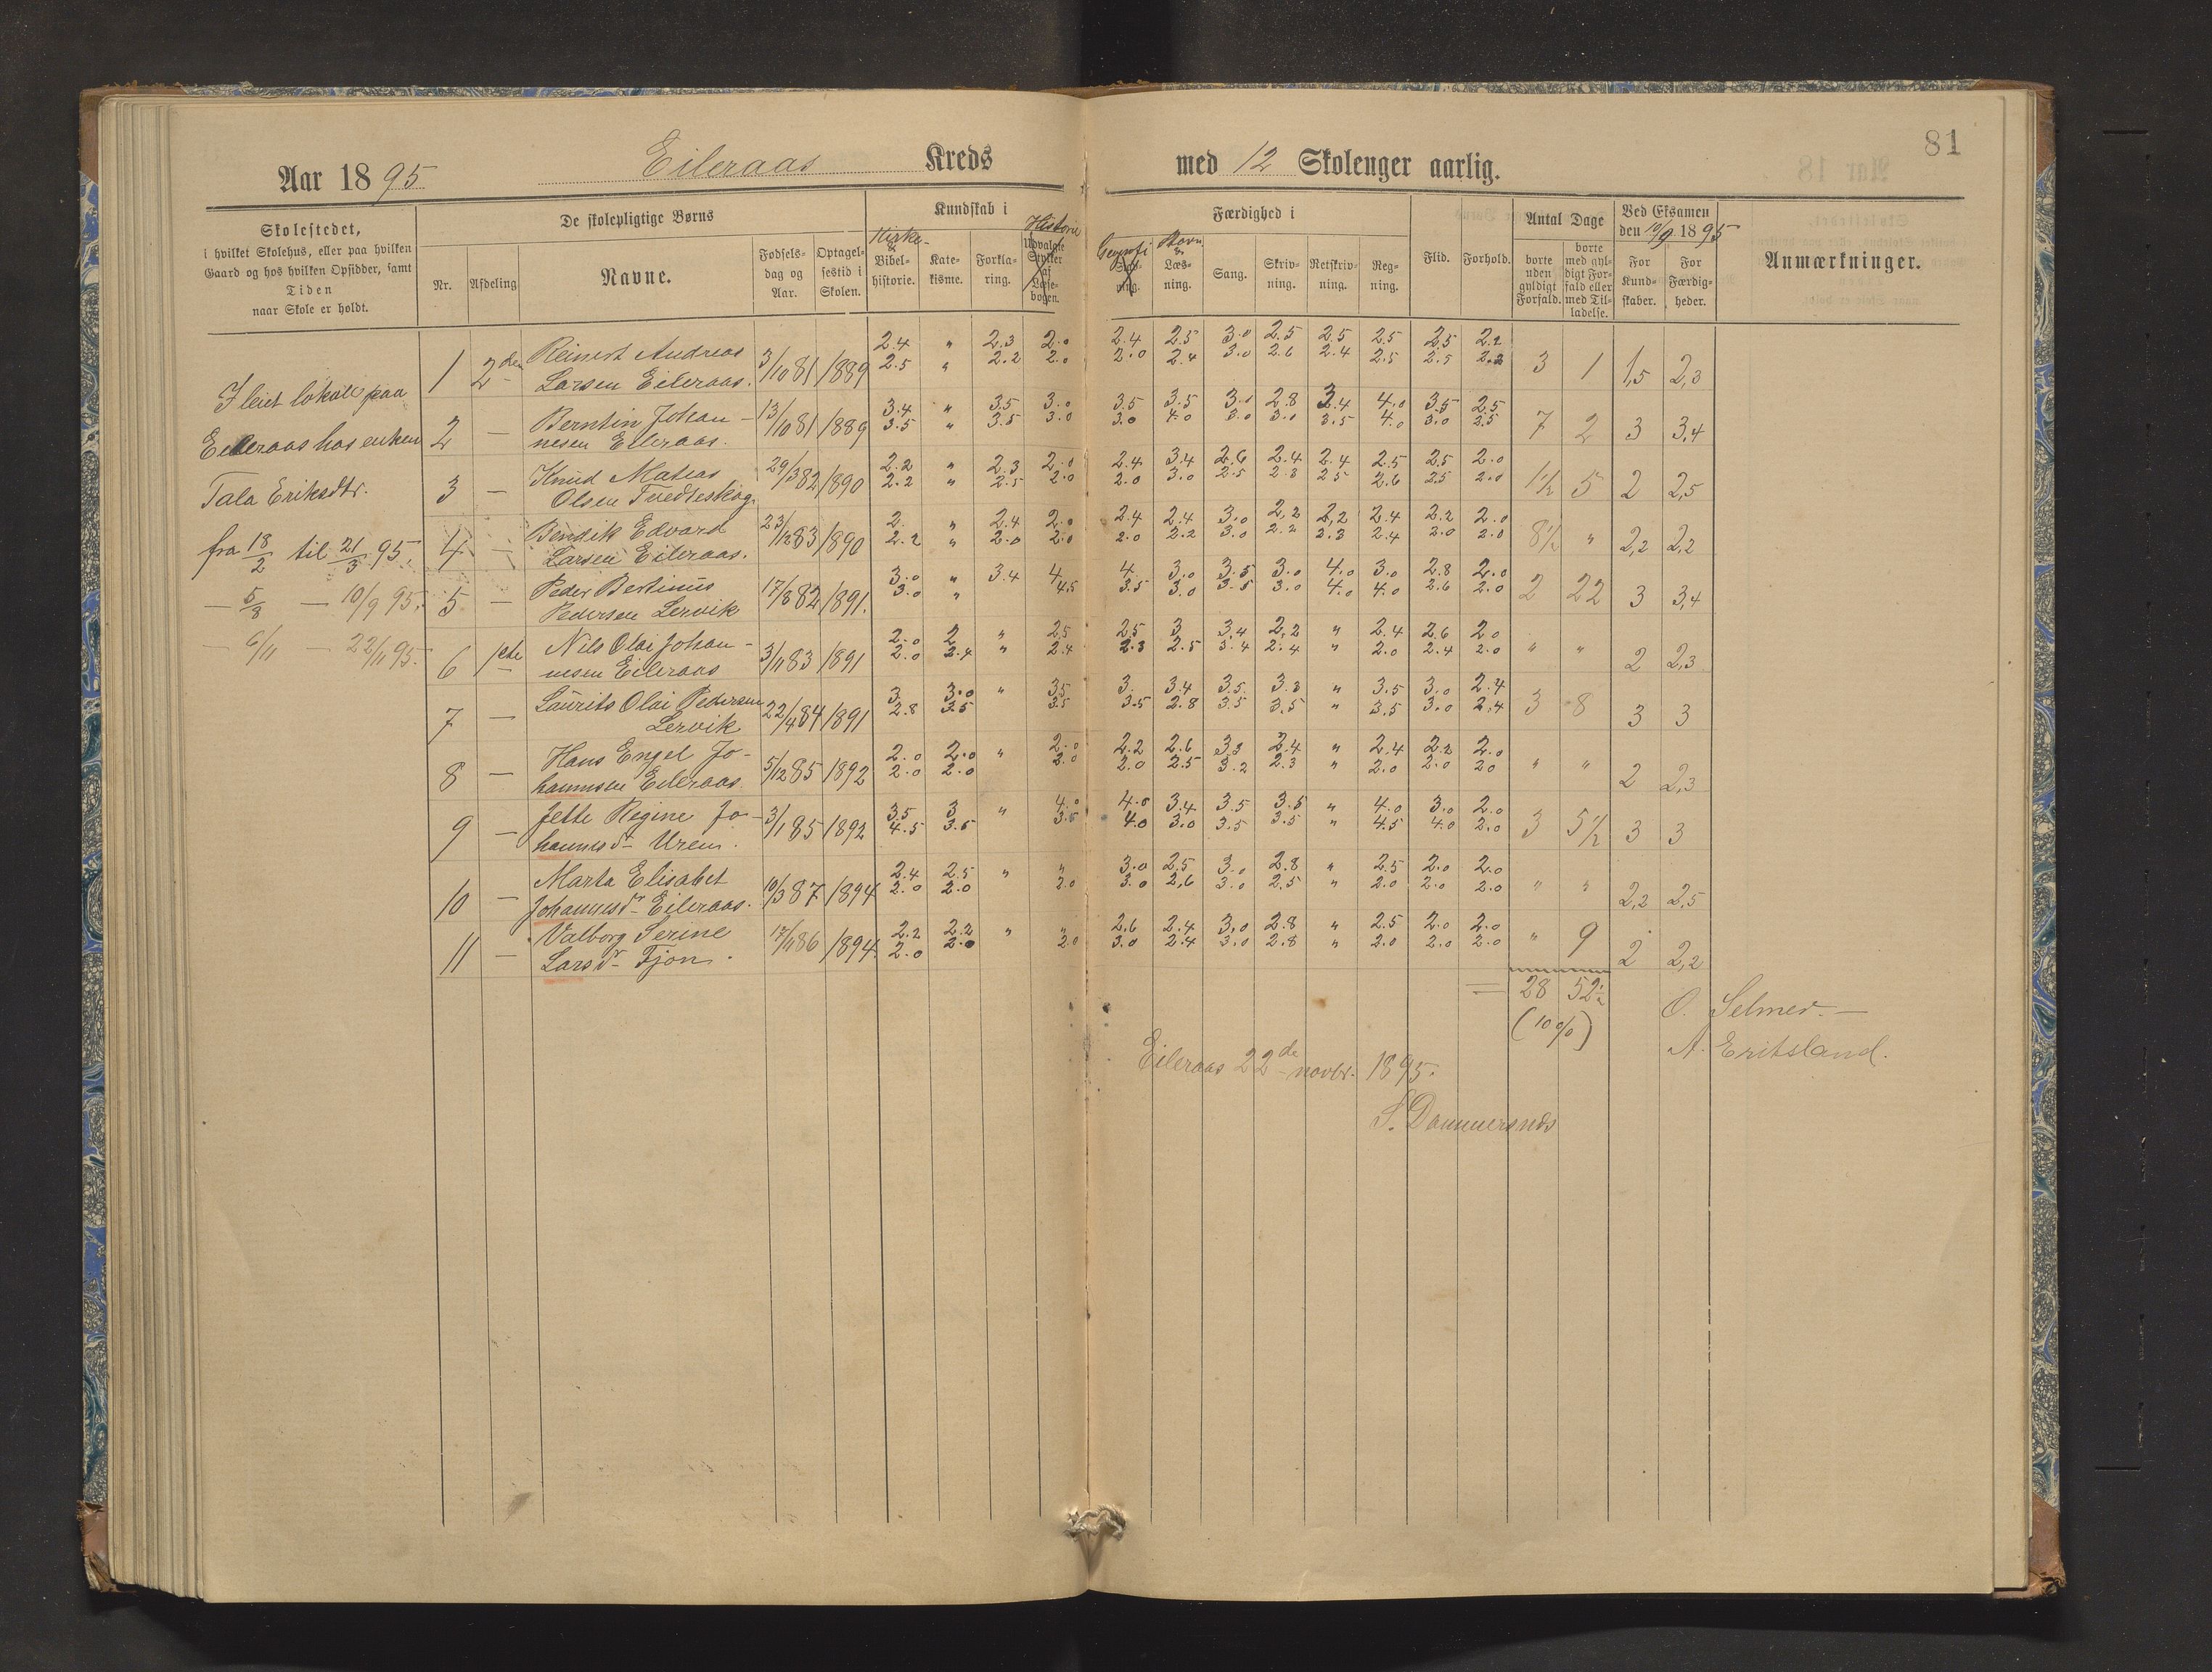 81
Aar 1895 Eileraas Kreds med 12 Skolenger aarlig.
Skolestedet,
i hvilket Skolehus, eller paa hvilken
Gaard og hos hvilken Opsidder, samt
Tiden
naar Skole er holdt.
De skolepligtige Børns
Nr. Afdeling Navne. Fødsels-dag og Aar. Optagel-sestid i Skolen.
Kundskab i
Kirke- & Bibel-historie. Kate-kisme. Forkla-ring. Historie Udvalgte Stykker af Læse-bogen.
Færdighed i
Læs-ning. Sang. Skriv-ning. Retskriv-ning. Reg-ning.
Flid. Forhold.
Antal Dage
borte uden gyldigt Forfald. borte med gyl-digt For-fald eller med Til-ladelse.
Ved Eksamen
den 10/9 1895
For Kund-skaber. For Færdig-heder.
Anmærkninger.
I leiet lokale paa
Eileraas hos enken
Tala Eriksdtr.
fra 18/2 til 21/3 95.
— 5/8 — 10/9 95.
— 6/11 — 22/11 95.
1 2den Reinert Andreas 3/10 81 1889 2.4 " 2.3 2.0 2.4 2.5 3.0 2.5 2.5 2.5 2.5 2.2 3 1 1,5 2,3
Larsen Eileraas. 2.5 " 2.2 2.0 2.0 2.4 3.0 2.6 2.4 2.5 2.5 2.2
2 — Berntin Johan- 13/10 81 1889 3.4 " 3.5 3.0 3.5 3.5 3.0 2.8 3.4 4.0 3.5 2.5 7 2 3 3,4
nesen Eileraas. 3.5 " 3.5 3.0 3.0 4.0 3.0 3.0 3.5 4.0 3.0 2.5
3 — Knud Matias 29/3 82 1890 2.2 " 2.3 2.0 2.4 3.4 2.6 2.4 2.4 2.5 2.5 2.0 1½ 5 2 2,5
Olsen Tvedteskog. 2.2 " 2.5 2.0 2.0 3.0 2.5 2.8 2.5 2.6 2.5 2.0
4 — Bendik Edvard 23/12 83 1890 2. " 2.4 2.0 2.4 2.4 3.0 2,2 2,2 2.4 2.2 2.0 8½ " 2,2 2,2
Larsen Eileraas. 2.2 " 2.0 2.0 2.0 2.2 3.0 2.2 2.3 2.4 2.0 2.0
5 — Peder Bertinus 17/8 82 1891. 3.0 " 3.4 4 4. 3.0 3.5 3.0 4.0 3.0 2.8 2.0 2 22 3 3,4
Pedersen Lervik 3.0 " 4.5 3.5 3.0 3.5 3.0 4.0 4.0 2.6 2.0
6 1ste Nils Olai Johan- 3/11 83 1891 2.0 2 " 2.5 2.5 3 3,4 2,2 " 2.4 2.6 2.0 " " 2 2,3
nesen Eileraas 2.0 2.4 " 2.4 2.3 2.5 3.4 2.4 " 2.0 2.4 2.0
7 — Laurits Olai Pedersen 22/4 84 1891 3. 3.0 " 3.5 3. 3.4 3.5 3.3 " 3.5 3.0 2.4 3 8 3 3
Lervik 2.8 3.5 3.5 3.5 2.8 3.5 3.5 " 3.5 3.0 2,4
8 — Hans Engel Jo- 5/12 85 1892 2.0 2.0 " 2.0 2.2 2.6 3.3 2.4 " 2.4 2.2 2.0 " " 2 2,3
hannesen Eileraas 2.0 2.0 2.0 2.0 2.5 3.2 2.3 " 2.0 2.0 2.0
9 — Jette Regine Jo- 3/1 85 1892 3.5 3 " 4.0 4.0 3.4 3.5 3.5 " 4.0 3.0 2.0 3 5½ 3 3
hannesdr Urem. 4.5 3.5 3.5 4.0 3.0 3.5 3.5 " 4.5 4.0 2.0
10 — Marta Elisabet 10/3 87 1894 2.4 2.5 " " 3.0 2.5 3.0 2.8 " 2.5 2.0 2.0 " " 2,2 2,5
Johannesdr Eileraas. 2.0 2.0 2.0 3.0 2,6 3.0 2.5 " 2.0 2.0 2.0
11 — Valborg Serine 17/11 86 1894. 2.2 2.2 " " 2.6 2.4 3,0 2.8 " 2.5 2.0 2.0 " 9 2 2,2
Larsdr Fjon. 2.0 2.0 2.0 3.0 2.4 3.0 2.8 " 2.0 2.0 2.0
= 28 52½
(10%)
O. Selmer.—
A. Eritsland.
Eileraas 22de novbr. 1895.